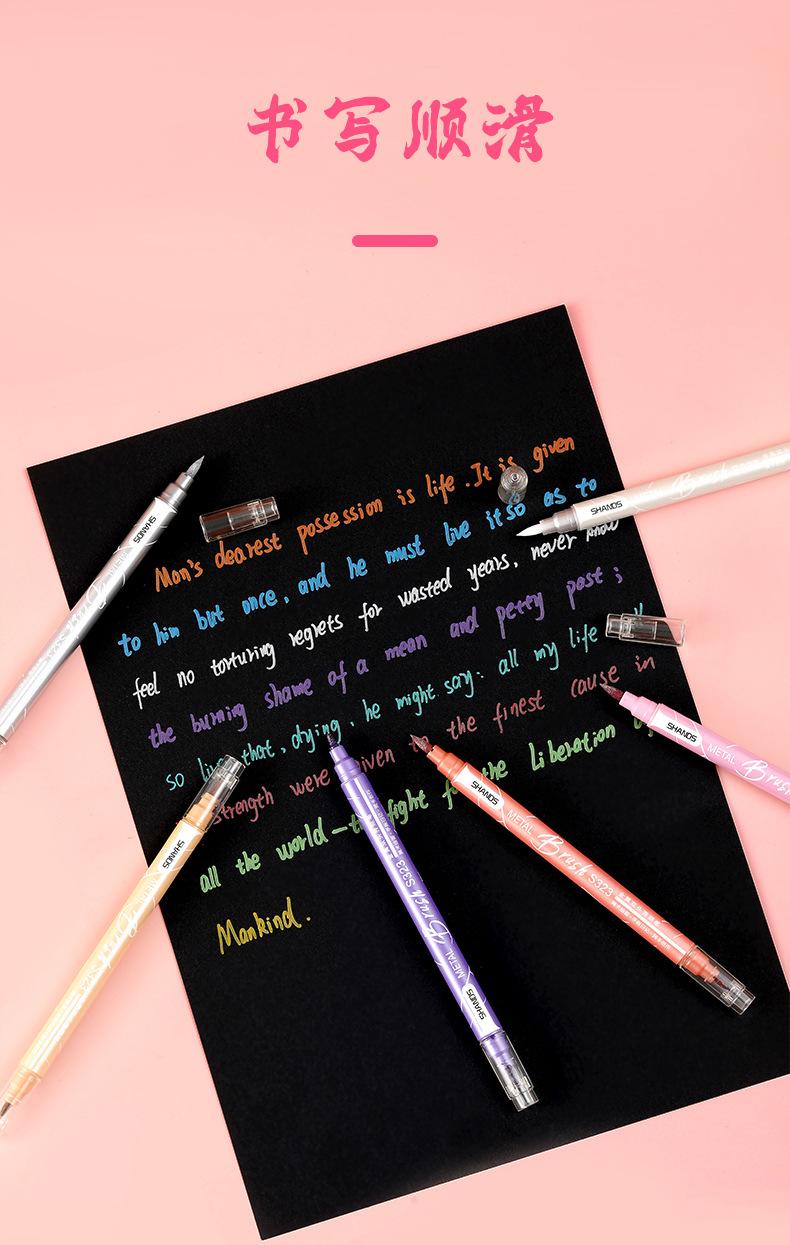 书写顺滑
Man's dearest possession is life. It is given
to him but once, and he must live it so as to
feel no torturing regrets for wasted years, never know
the burning shame of a mean and petty past;
so live that, drying, he might say: all my life
strength were given to the finest cause in
all the world — fight the Liberation
Mankind.
SHANDS
SHANDS
SHANDS METAL Brush
SHANDS
SHANDS METAL Brush S323
SHANDS METAL Brush S323